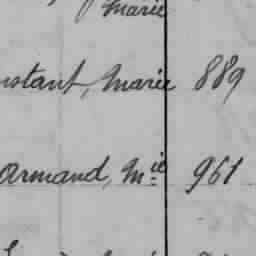 Marie
nstant, Marie 889
Armand, Mie 961